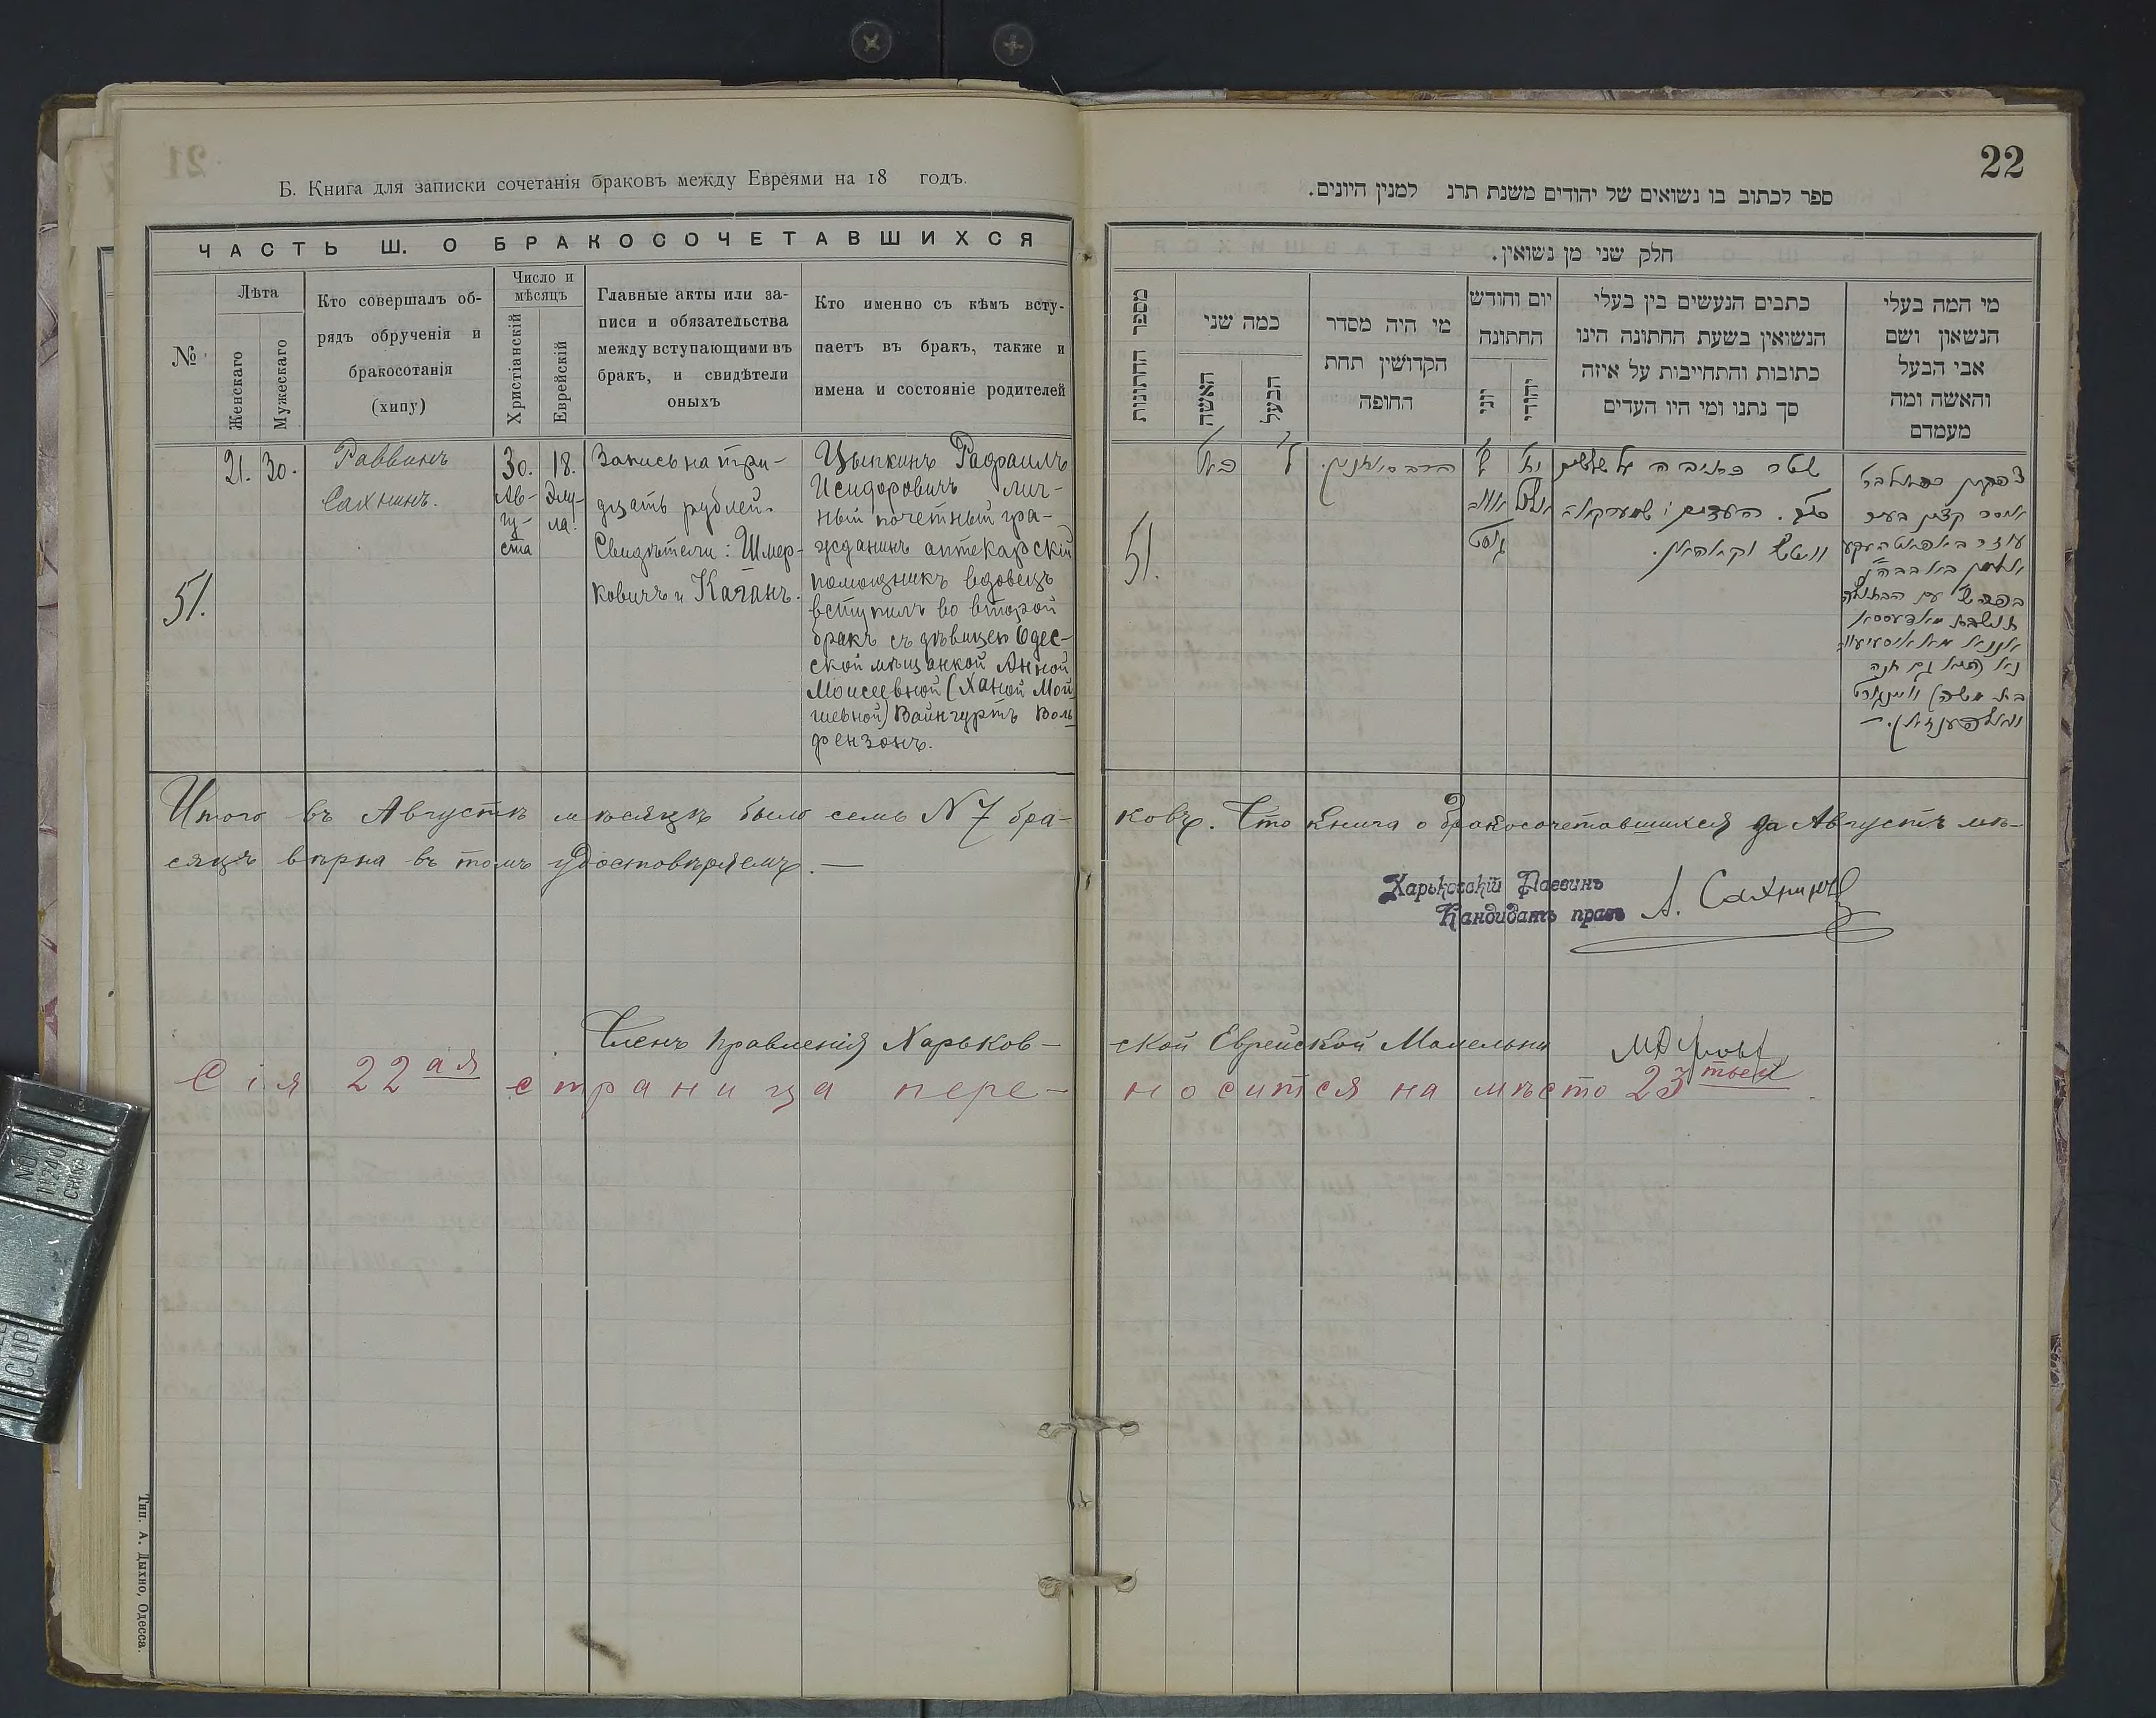 22
Б. Книга для записки сочетанія браковъ между Евреями на 18 годъ.
ЧАСТЬ Ш. О БРАКОСОЧЕТАВШИХСЯ
№
Лѣта
Женскаго
Мужескаго
Кто совершалъ об-
рядъ обрученія и
бракосотанія
(хипу)
Число и
мѣсяцъ
Христіанскій
Еврейскій
Главные акты или за-
писи и обязательства
между вступающими въ
бракъ, и свидѣтели
оныхъ
Кто именно съ кѣмъ всту-
паетъ въ бракъ, также и
имена и состояніе родителей
51.
21.
30.
Раввинъ
Сахнинъ.
30.
Ав-
гу-
ста
18.
Элу-
ла.
Запись на три-
дцать рублей.
Свидѣтели: Шмер-
ковичъ и Каганъ.
Цыпкинъ Рафаилъ
Исидоровичъ лич-
ный почетный гра-
жданинъ аптекарскій
помощникъ вдовецъ
вступилъ во второй
бракъ съ дѣвицею Одес-
ской мѣщанкой Анной
Моисеевной (Ханой Мой
шевной) Вайнгуртъ Воль
фензонъ.
ספר לכתוב בו נשואים של יהודים משנת תרנ למנין היונים.
חלק שני מן נשואין.
מספר החתונות
כמה שני
האשה
הבעל
מי היה מסדר
הקדושין תחת
החופה
יום וחודש
החתונה
יוני
יהודי
כתבים הנעשים בין בעלי
הנשואין בשעת החתונה הינו
כתובות והתחייבות על איזה
סך נתנו ומי היו העדים
מי המה בעלי
הנשואן ושם
אבי הבעל
והאשה ומה
מעמדם
51.
ל
הרב סאחנין.
ל
אוו
גוסט
יח
אלול
שטר כתיבה על שלשים
העדים: שמערקאוו
וויטש וקאהאן.
Итого въ Августѣ мѣсяцѣ было семь N 7 бра-
ковъ. Что книга о бракосочетавшихся за Августъ мѣ-
сяцъ вѣрна въ томъ удостовѣряемъ. —
Харьковскій Раввинъ
Кандидатъ правъ
А. Сахнинъ
Членъ Правленія Харьков-
ской Еврейской Молельни
Сія 22 ая страница пере-
носится на мѣсто 23 тьей.
Тип. А. Дыхно, Одесса.
NO.
CLIP